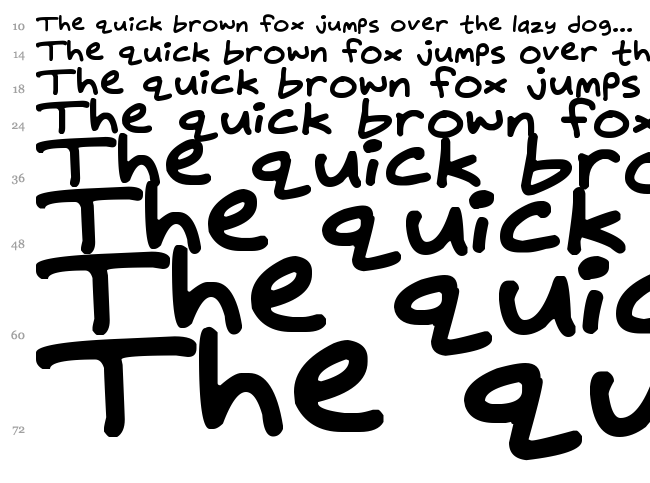 10 The quick brown fox jumps over the lazy dog...
14 The quick brown fox jumps over th
18 The quick brown fox jumps
24 The quick brown fox
36 The quick bro
48 The quick
60 The quic
72 The qu